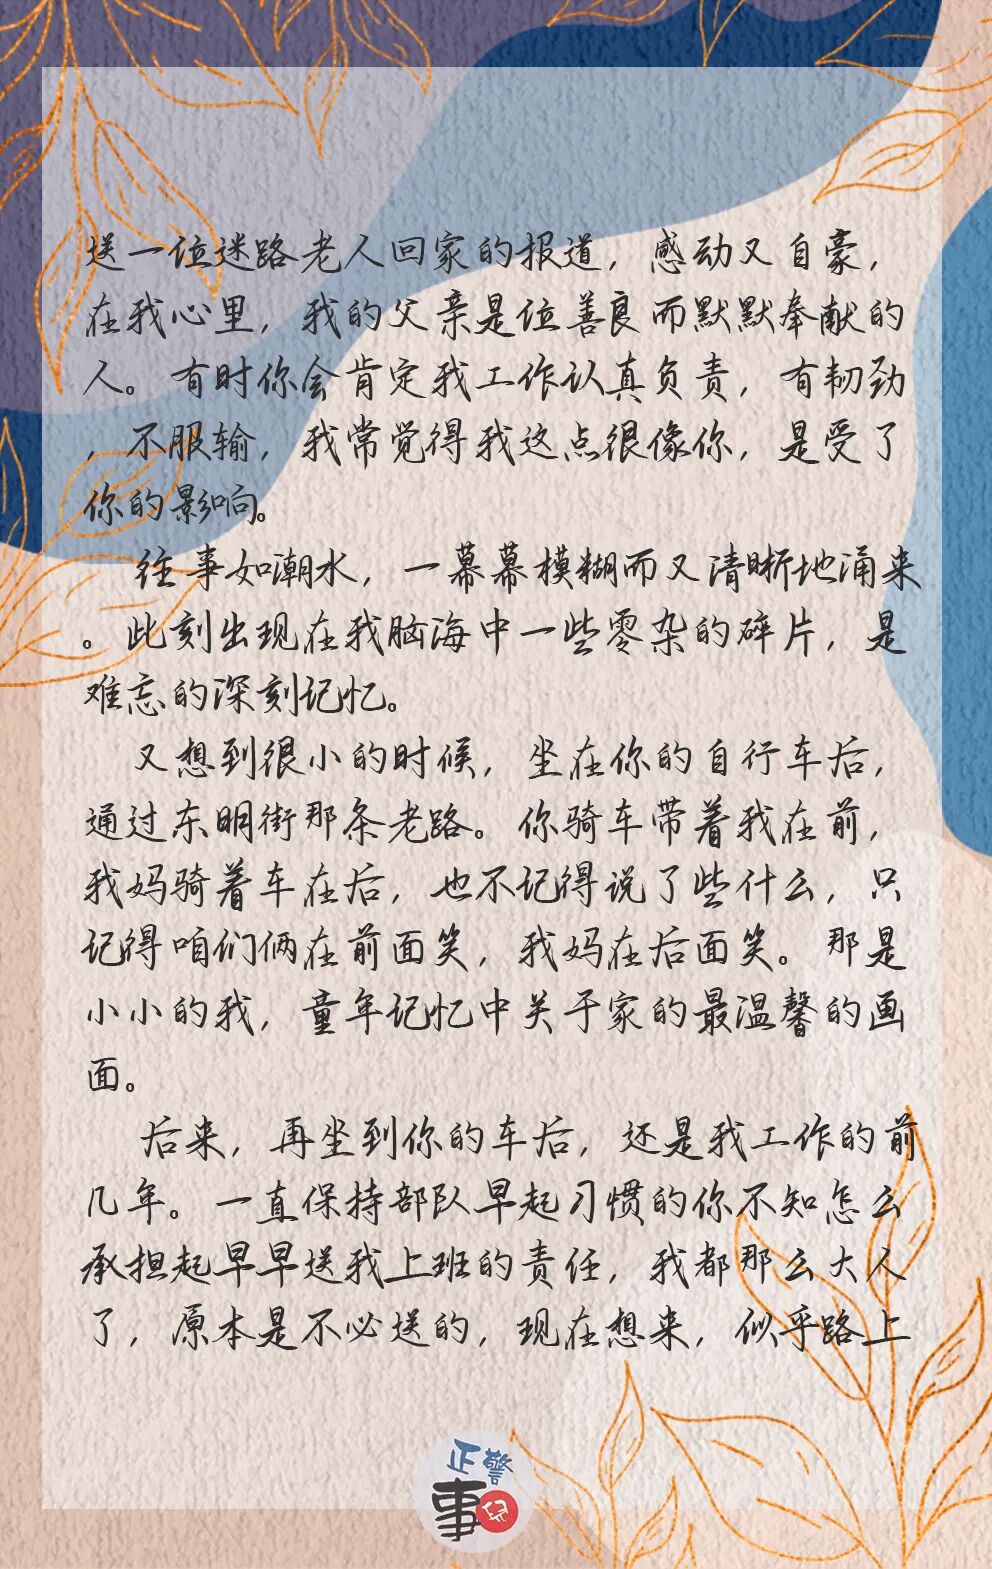 送一位迷路老人回家的报道，感动又自豪，
在我心里，我的父亲是位善良而默默奉献的
人。有时你会肯定我工作认真负责，有韧劲
，不服输，我常觉得我这点很像你，是受了
你的影响。
往事如潮水，一幕幕模糊而又清晰地涌来
。此刻出现在我脑海中一些零杂的碎片，是
难忘的深刻记忆。
又想到很小的时候，坐在你的自行车后，
通过东明街那条老路。你骑车带着我在前，
我妈骑着车在后，也不记得说了些什么，只
记得咱们俩在前面笑，我妈在后面笑。那是
小小的我，童年记忆中关于家的最温馨的画
面。
后来，再坐到你的车后，还是我工作的前
几年。一直保持部队早起习惯的你不知怎么
承担起早早送我上班的责任，我都那么大人
了，原本是不必送的，现在想来，似乎路上
正警
事